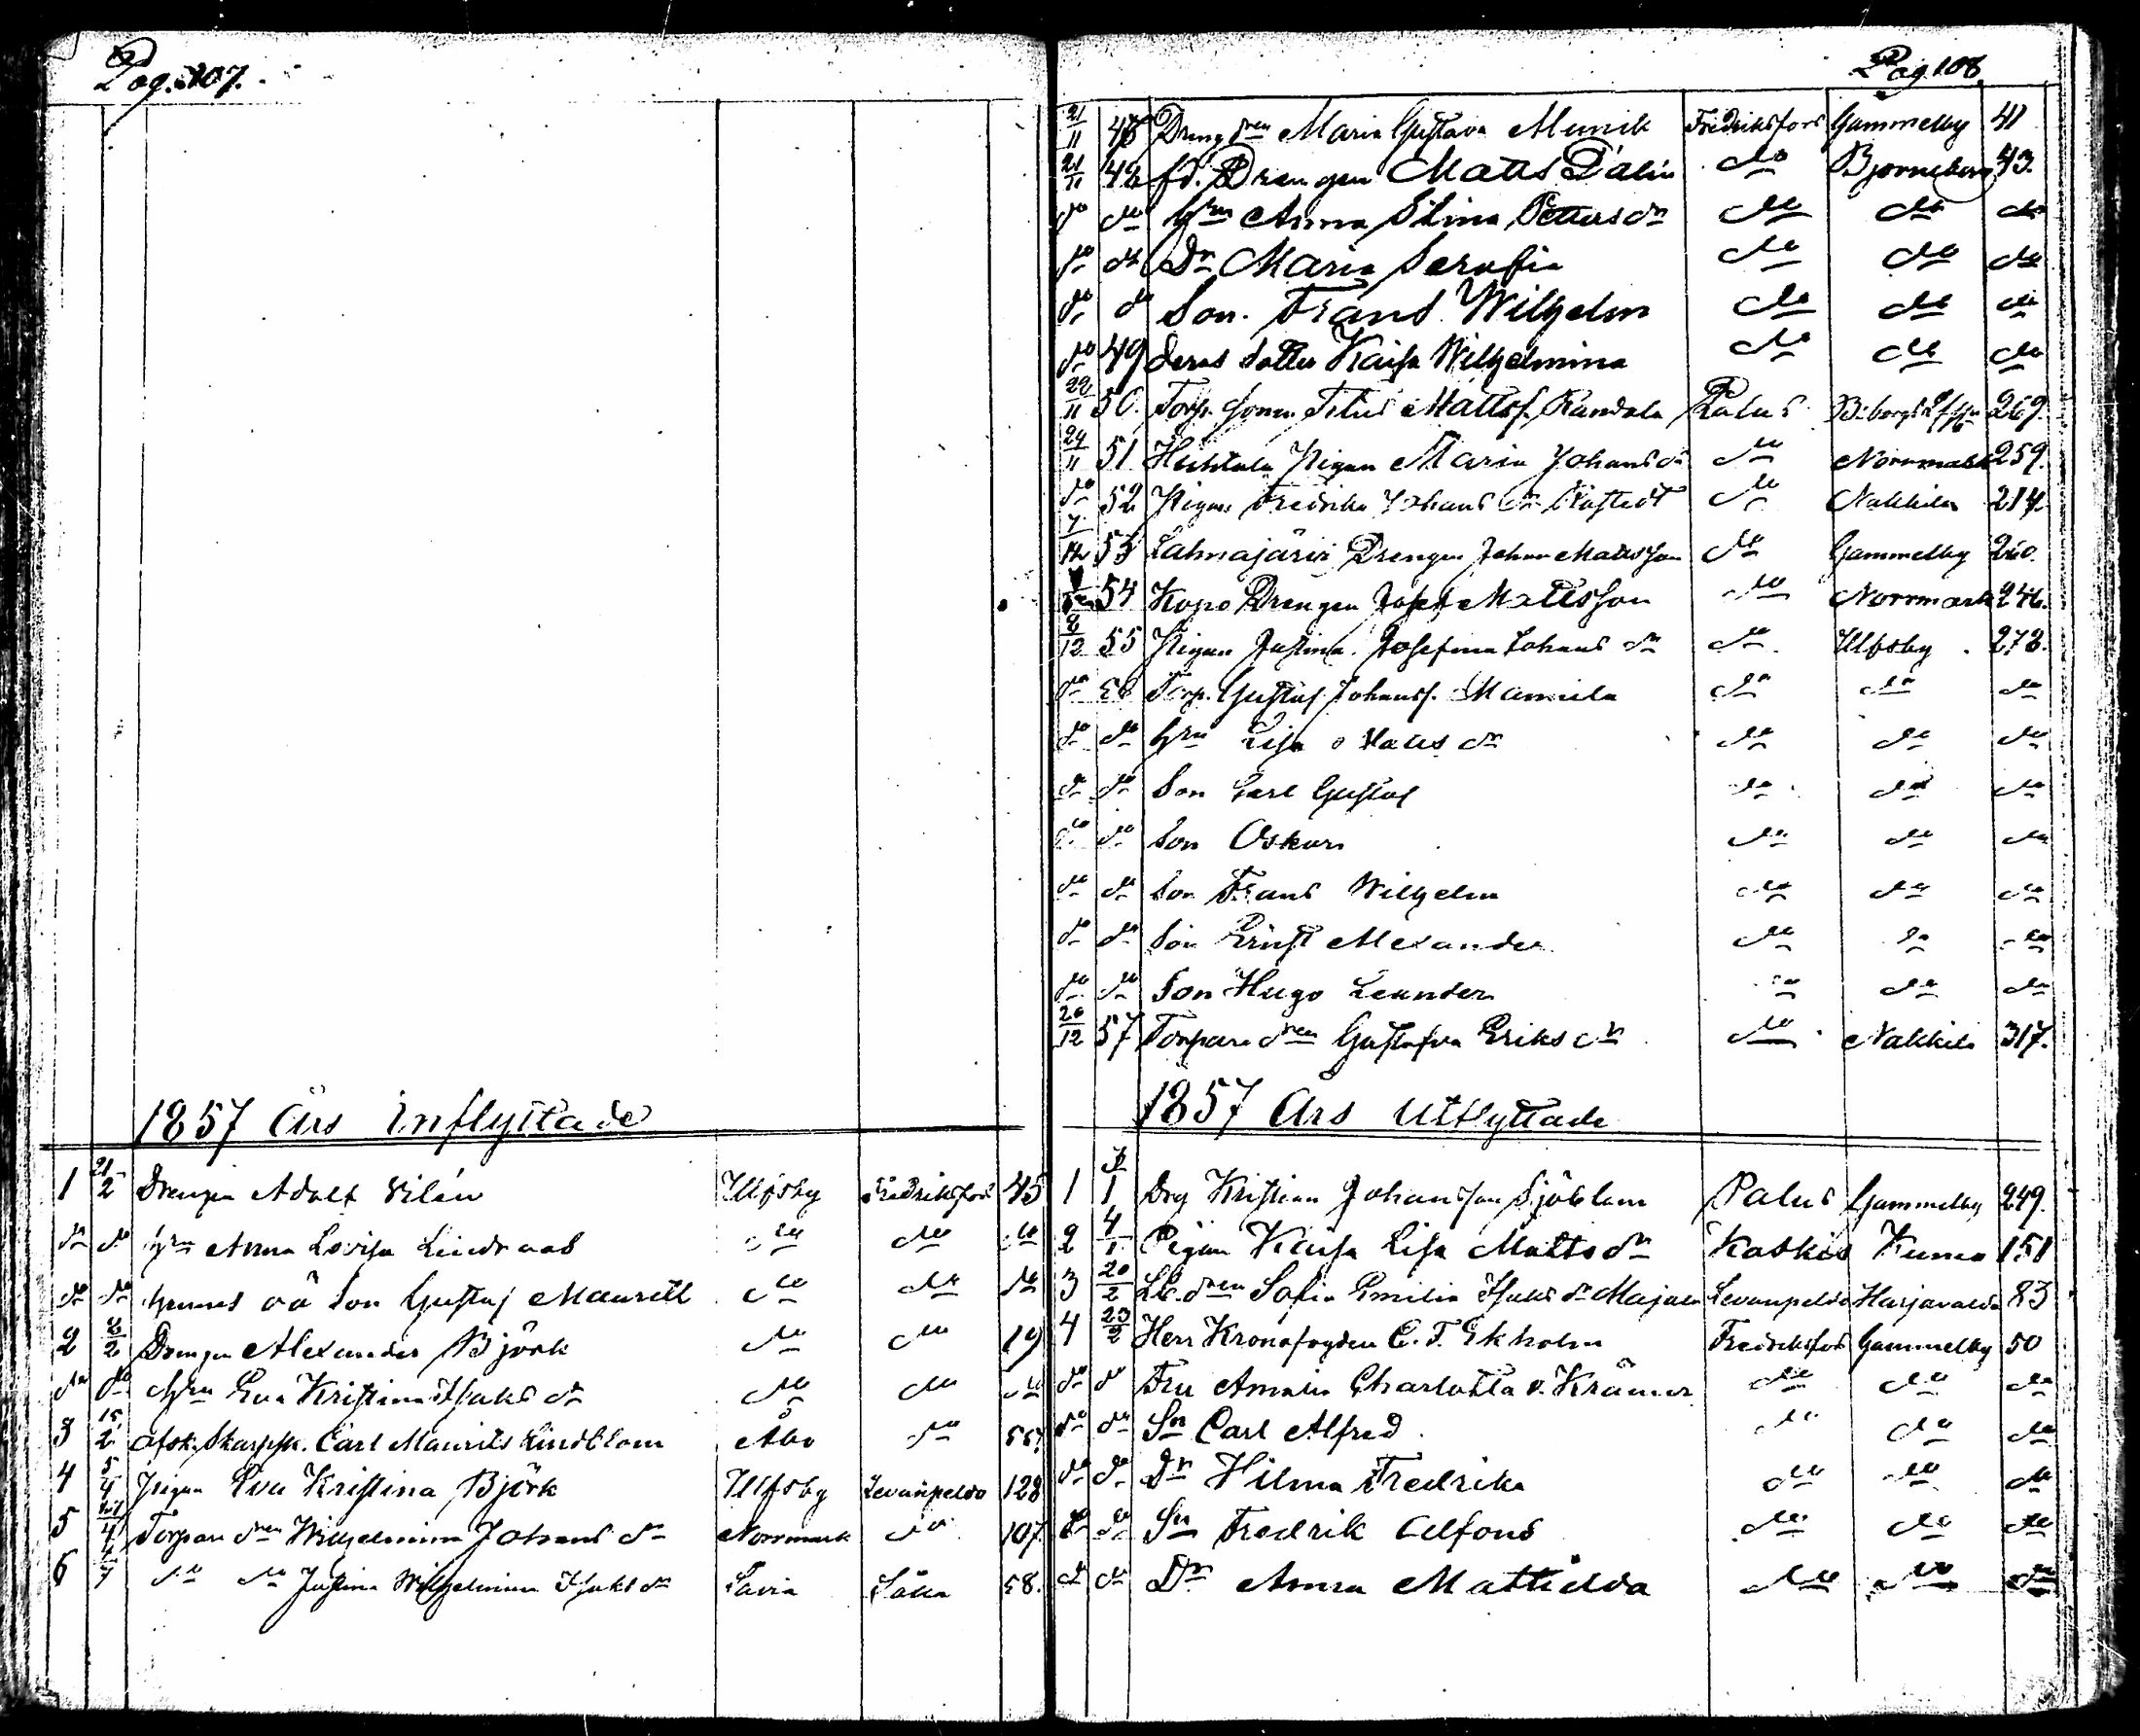 Pag. 107.
1857 Års Inflyttade
1 21/2 Drengen Adolf Vilén Ulfsby Fredriksfors 45
do do Hru Anna Lovisa Lindroos do do do
do do hennes oä Son Gustaf Mauritz do do do
2 8/2 Drengen Alexander Björk do do 19
do do Hru Eva Kristina Isaks dr do do do
3 15/2 afsk. Skarpsk. Carl Maurits Lindblom Åbo do 55
4 5/4 Pigan Eva Kristina Björk Ulfsby Levanpelto 128
5 4 Torpare dren Wilhelmina Johans dr Norrmark do 107.
6 7 do do Justina Wilhelmina Isaks dr Lavia 58.
Pag. 108
21/11 Dreng dren Maria Gustava Munik Fredriksfors Gammelby 41
21/11 48 fd. Drengen Matts Dalin do Björneborg 43.
do do Hru Anna Stina Petters dr do do do
do do Dr Maria Serafia do do do
do do Son. Frans Wilhelm do do do
do 49 deras dotter Kaisa Wilhelmina do do do
22/11 50. Torp. sonen Titus Mattss. Randala Palus 269.
24/11 51 Huhtala Pigan Maria Johans dr do Norrmark 259.
do 52 Pigan Fredrika Johans dr do Nakkila 214.
7/12 53 Lahnajärvi Drengen Johan Matsson do Gammelby 260.
54 Kopo Drengen Josef Mattsson do Norrmark 246.
8/12 55 Pigan Justina Josefina Johans dr do Ulfsby 278.
do 56 Torp. Gustaf Johanss. Mannila do do do
do do Hru Lisa Mats dr do do do
do do Son Carl Gustaf do do do
do do Son Oskar do do do
do do Son Frans Wilhelm do do do
do do Son Ernst Alexander do do do
do do Son Hugo Leander do do do
20/12 57 Torpare dren Gustafva Eriks dr do Nakkila 317.
1857 Års Utflyttade
1 Drg Kristian Johansson Sjöblom Palus Gammelby 249.
2 4/1 Pigan Kaisa Lisa Matts dr Kaskis Kumo 151
3 20/2 dren Sofia Emilia Isaks dr Majala Levanpelto Harjavalda 83
4 23/2 Herr Kronofogden C. F. Ekholm Fredriksfors Gammelby 50
do do Fru Amalia Charlotta v. Krämer do do do
do do Sn Carl Alfred do do do
do do Dr Hilma Fredrika do do do
do do Sn Fredrik Alfons do do do
do do Dr Anna Mathilda do do do